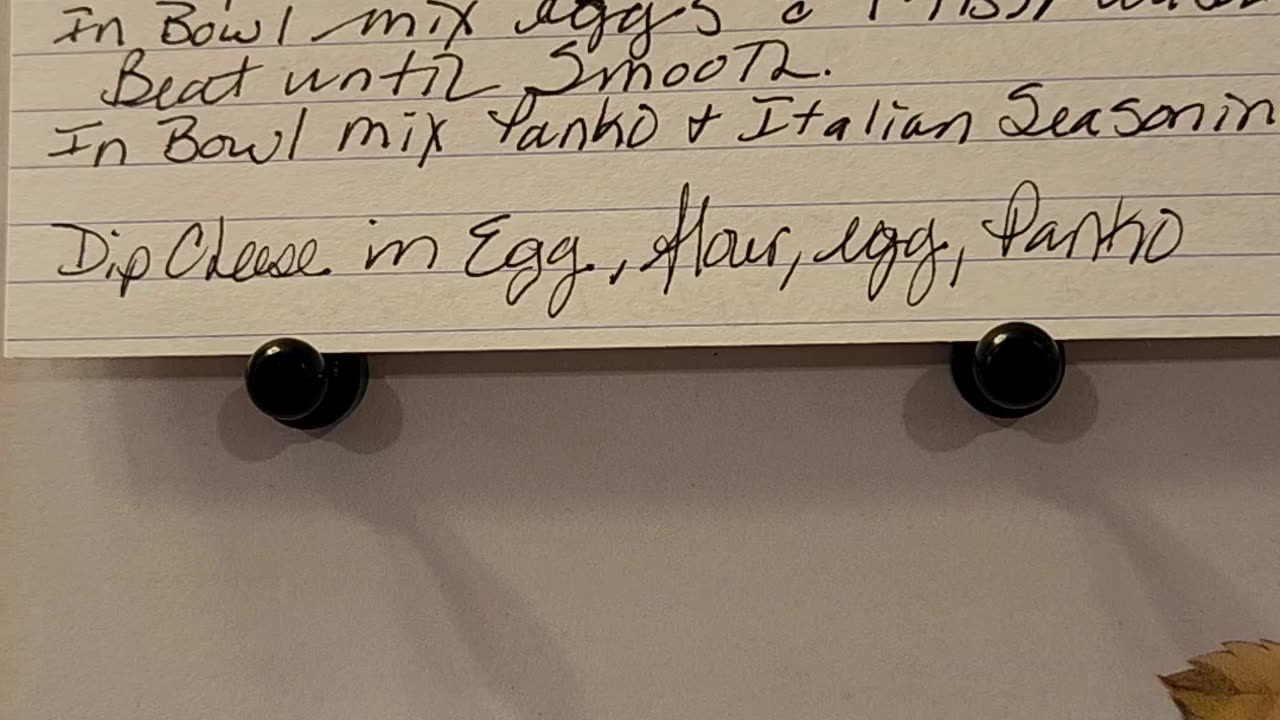 In Bowl mix eggs
Beat until Smooth.
In Bowl mix Panko + Italian Seasonin
Dip Cheese in Egg, flour, egg, Panko